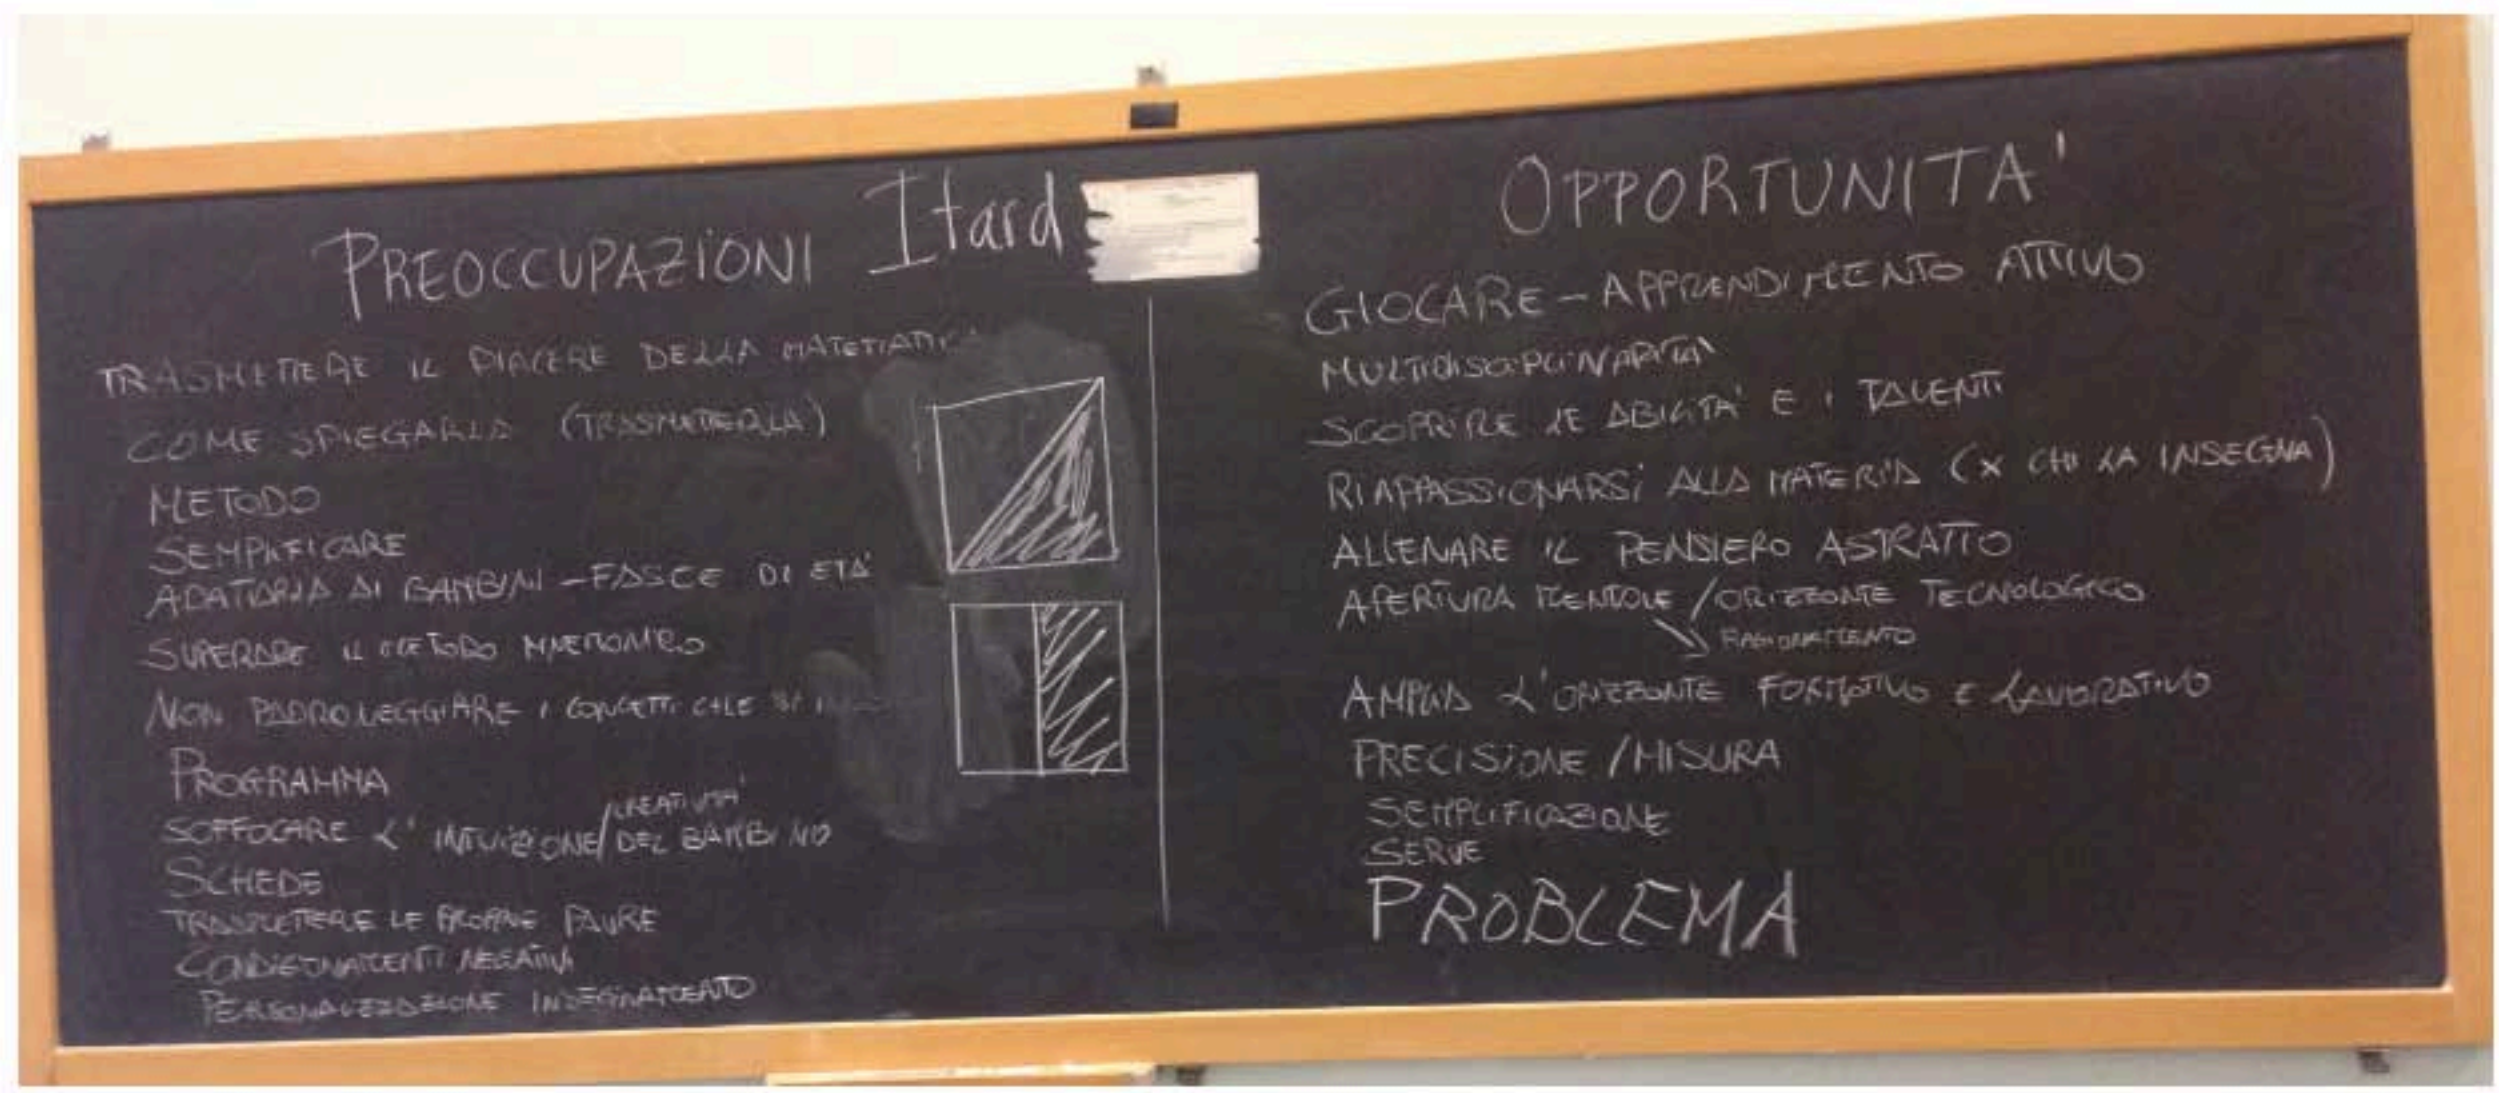 PREOCCUPAZIONI
Itard
TRASMETTERE IL PIACERE DELLA
COME SPIEGARLA (TRASMETTERLA)
METODO
SEMPLIFICARE
ADATTARLA AI BAMBINI - FASCE DI ETÀ
SUPERARE IL METODO MNEMONICO
NON PADRONEGGIARE I CONCETTI CHE SI
PROGRAMMA
SOFFOCARE L'INTUIZIONE/CREATIVITÀ
DEL BAMBINO
SCHEDE
TRASMETTERE LE PROPRIE PAURE
CONDIZIONAMENTI NEGATIVI
PERSONALIZZAZIONE INSEGNAMENTO
OPPORTUNITA'
GIOCARE - APPRENDIMENTO ATTIVO
MULTIDISCIPLINARITÀ
SCOPRIRE LE ABILITA' E I TALENTI
RIAPPASSIONARSI ALLA MATERIA (X CHI LA INSEGNA)
ALLENARE IL PENSIERO ASTRATTO
APERTURA MENTALE / ORIZZONTE TECNOLOGICO
RAGIONAMENTO
AMPLIA L'ORIZZONTE FORMATIVO E LAVORATIVO
PRECISIONE / MISURA
SEMPLIFICAZIONE
SERVE
PROBLEMA